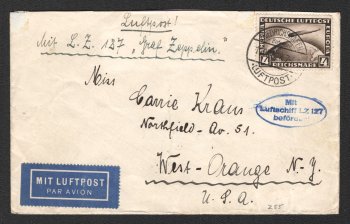 Luftpost!
Mit L.Z. 127 „Graf Zeppelin."
DEUTSCHE LUFTPOST
4 REICHSMARK 4
LUFTPOST
Miss
Carrie Kraus
Northfield-Av. 51.
West-Orange N.Y.
U.S.A.
Mit
Luftschiff LZ 127
befördert
MIT LUFTPOST
PAR AVION
255